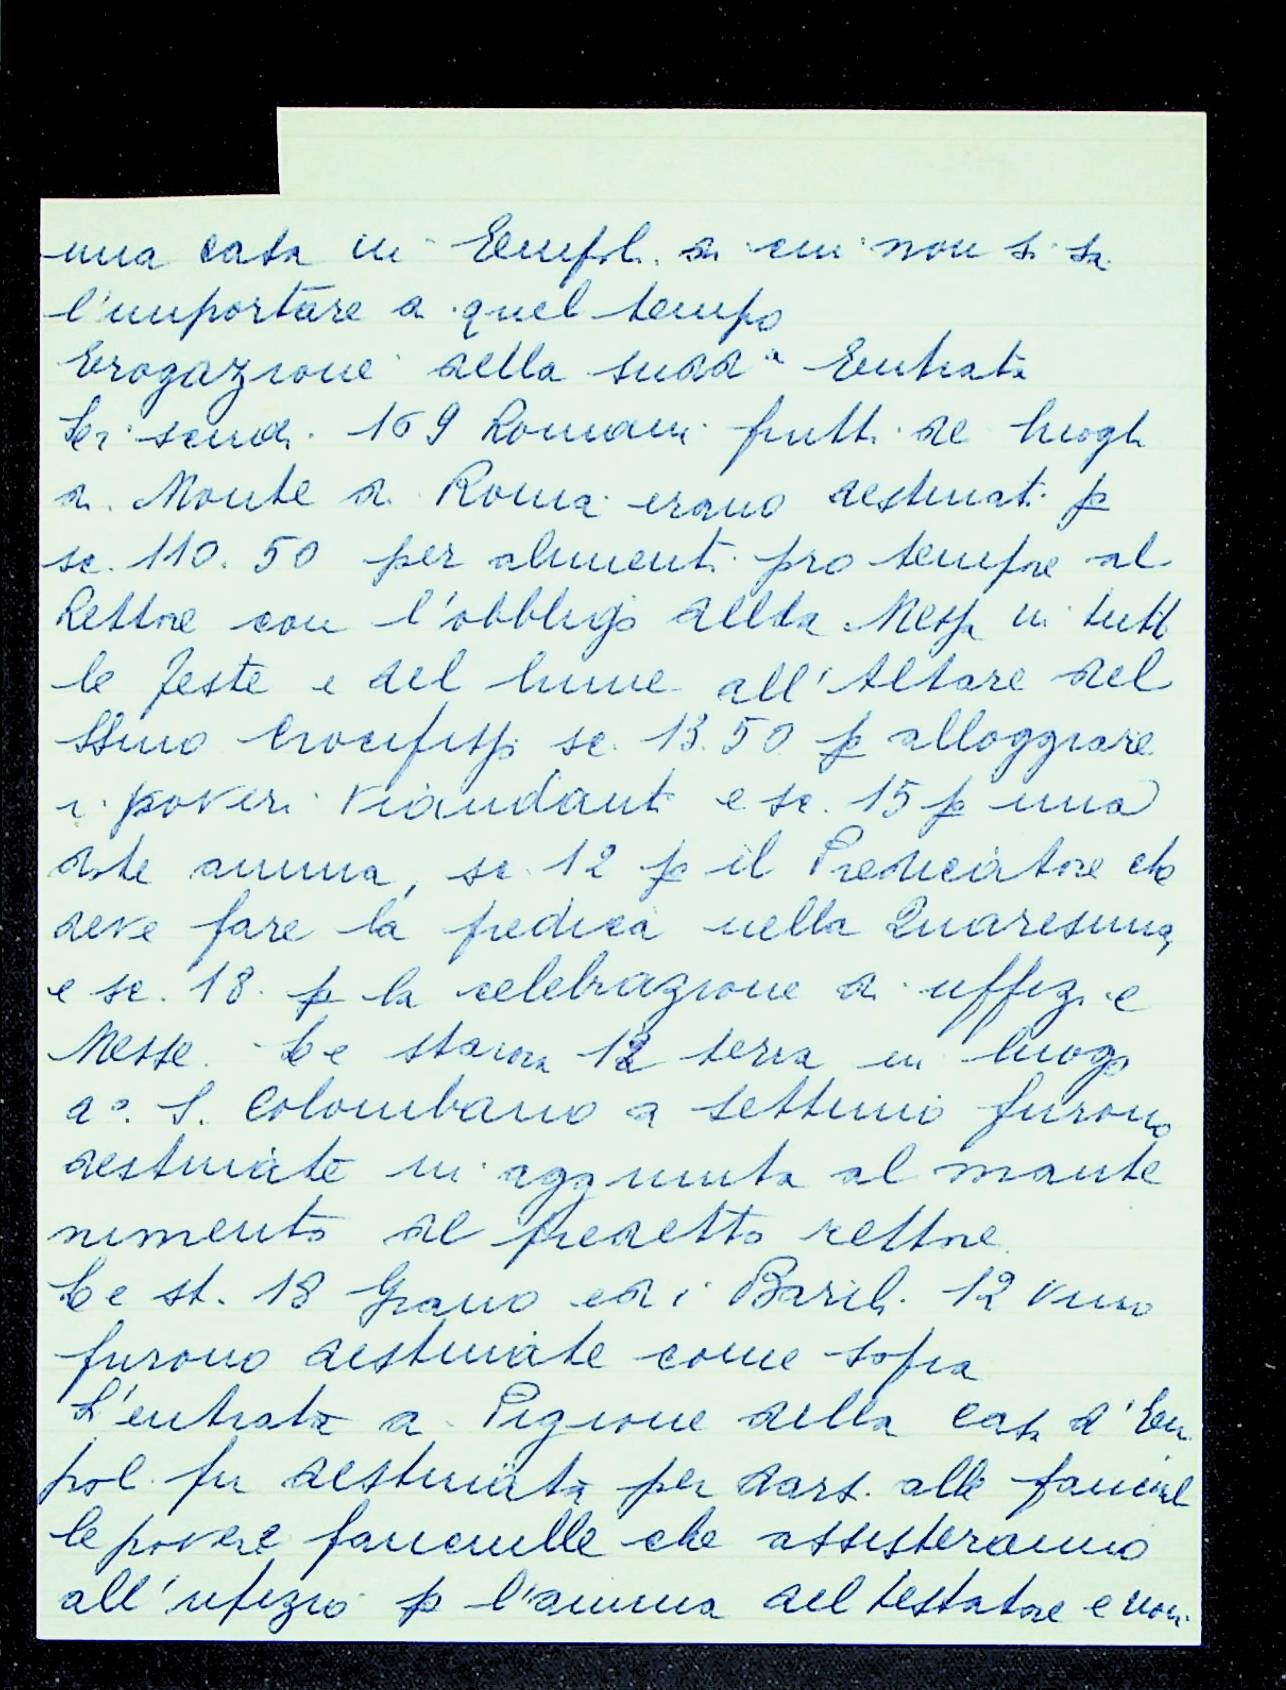 una casa in Empoli di cui non si sa
l'importare a quel tempo
Erogazione della sudda Entrata
Li scudi 169 Romani frutti de luoghi
di Monte di Roma erano destinati p
sc. 110.50 per alimenti pro tempore al
Rettore con l'obbligo della Messa in tutte
le feste e del lume all'Altare del
SSmo Crocifisso sc. 13.50 p alloggiare
i poveri viandanti e sc. 15 p una
dote annua, sc. 12 p il Predicatore che
deve fare la predica nella Quaresima,
e sc. 18 p la celebrazione di uffizi e
Messe. Le staiora 12 terra in luogo
do. S. Colombano a Settimo furono
destinate in aggiunta al mante
nimento del predetto rettore.
Le st. 18 Grano ed i Barili 12 vino
furono destinate come sopra
L'entrata a Pigione della casa d'Em
poli fu destinata per darsi alle fanciul
le povere fanciulle che assisteranno
all'ufizio p l'anima del testatore e non